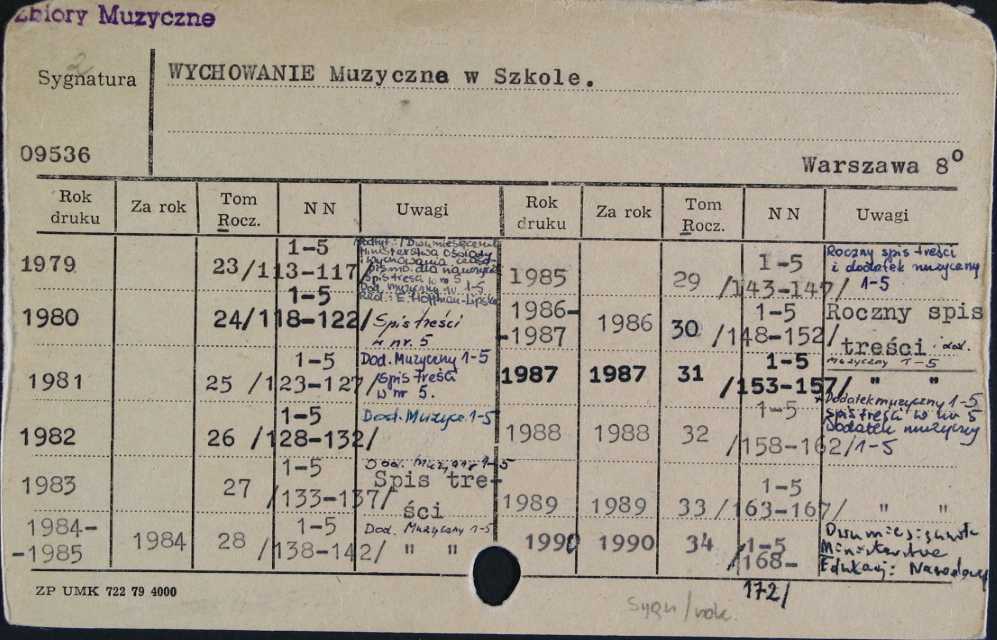 Zbiory Muzyczne
Sygnatura
WYCHOWANIE Muzyczne w Szkole.
09536
Warszawa 8°
Rok druku Za rok Tom Rocz. NN Uwagi Rok druku Za rok Tom Rocz. NN Uwagi
1979 23 1-5 /113-117/
Dwumiesięcznik
Ministerstwa Oświaty
i Wychowania
pismo dla nauczycieli
Spis treści w nr 5
Dod. muzyczny nr. 1-5
Red.: E. Hoffman-Lipska
1980 24 1-5 /118-122/ Spis treści
w nr. 5
1981 25 1-5 /123-127/ Dod. Muzyczny 1-5
Spis treści
w nr 5.
1982 26 1-5 /128-132/ Dod. Muzycz. 1-5
1983 27 1-5 /133-137/ Dod. Muzyczny 1-5
Spis tre-
ści
1984-
-1985 1984 28 1-5 /138-142/ Dod. Muzyczny 1-5
" "
1985 29 1-5 /143-147/ Roczny spis treści
i dodatek muzyczny
1-5
1986-
-1987 1986 30 1-5 /148-152/ Roczny spis
treści. dod.
muzyczny 1-5
1987 1987 31 1-5 /153-157/ " "
Dodatek muzyczny 1-5
1988 1988 32 1-5 /158-162/ spis treści w nr 5
Dodatek muzyczny
1-5
1989 1989 33 1-5 /163-167/ " "
1990 1990 34 1-5 /168-
172/
Dwumiesięcznik
Ministerstwa
Edukacji Narodowej
ZP UMK 722 79 4000
Sygn/rok.